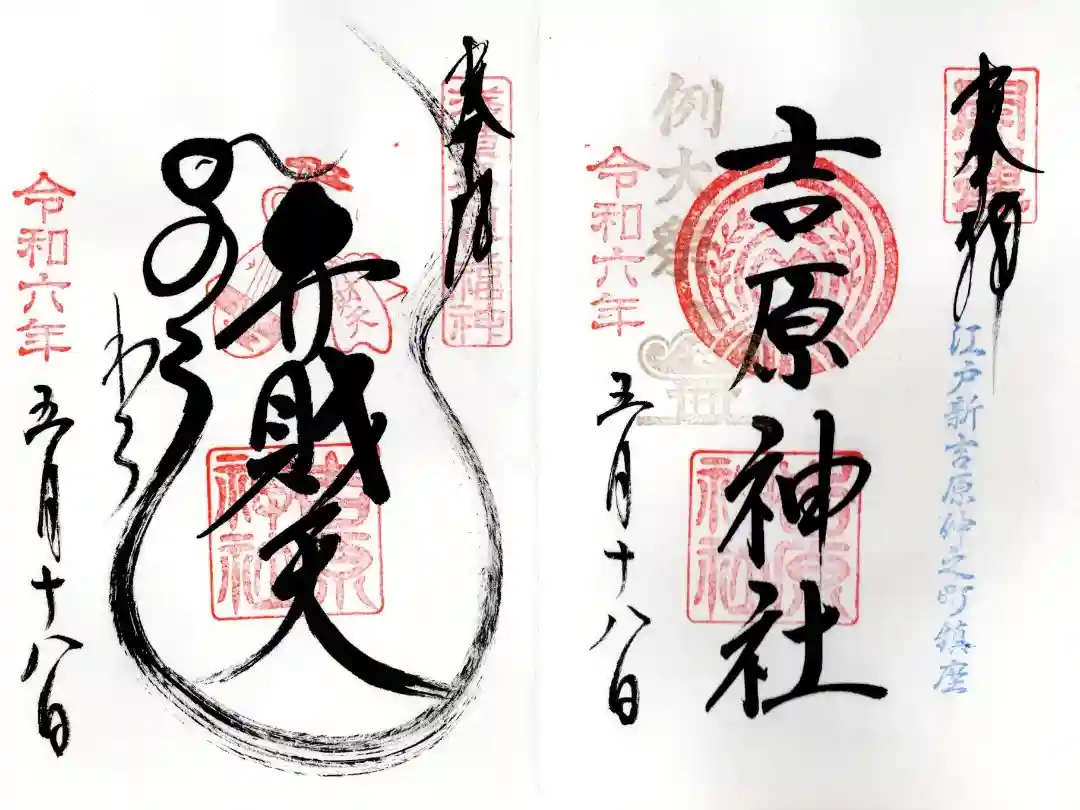 奉拝
開運
江戸新吉原仲之町鎮座
吉原神社
吉原神社
例大祭
令和六年
五月十八日
奉拝
弁財天
吉原神社
令和六年
五月十八日